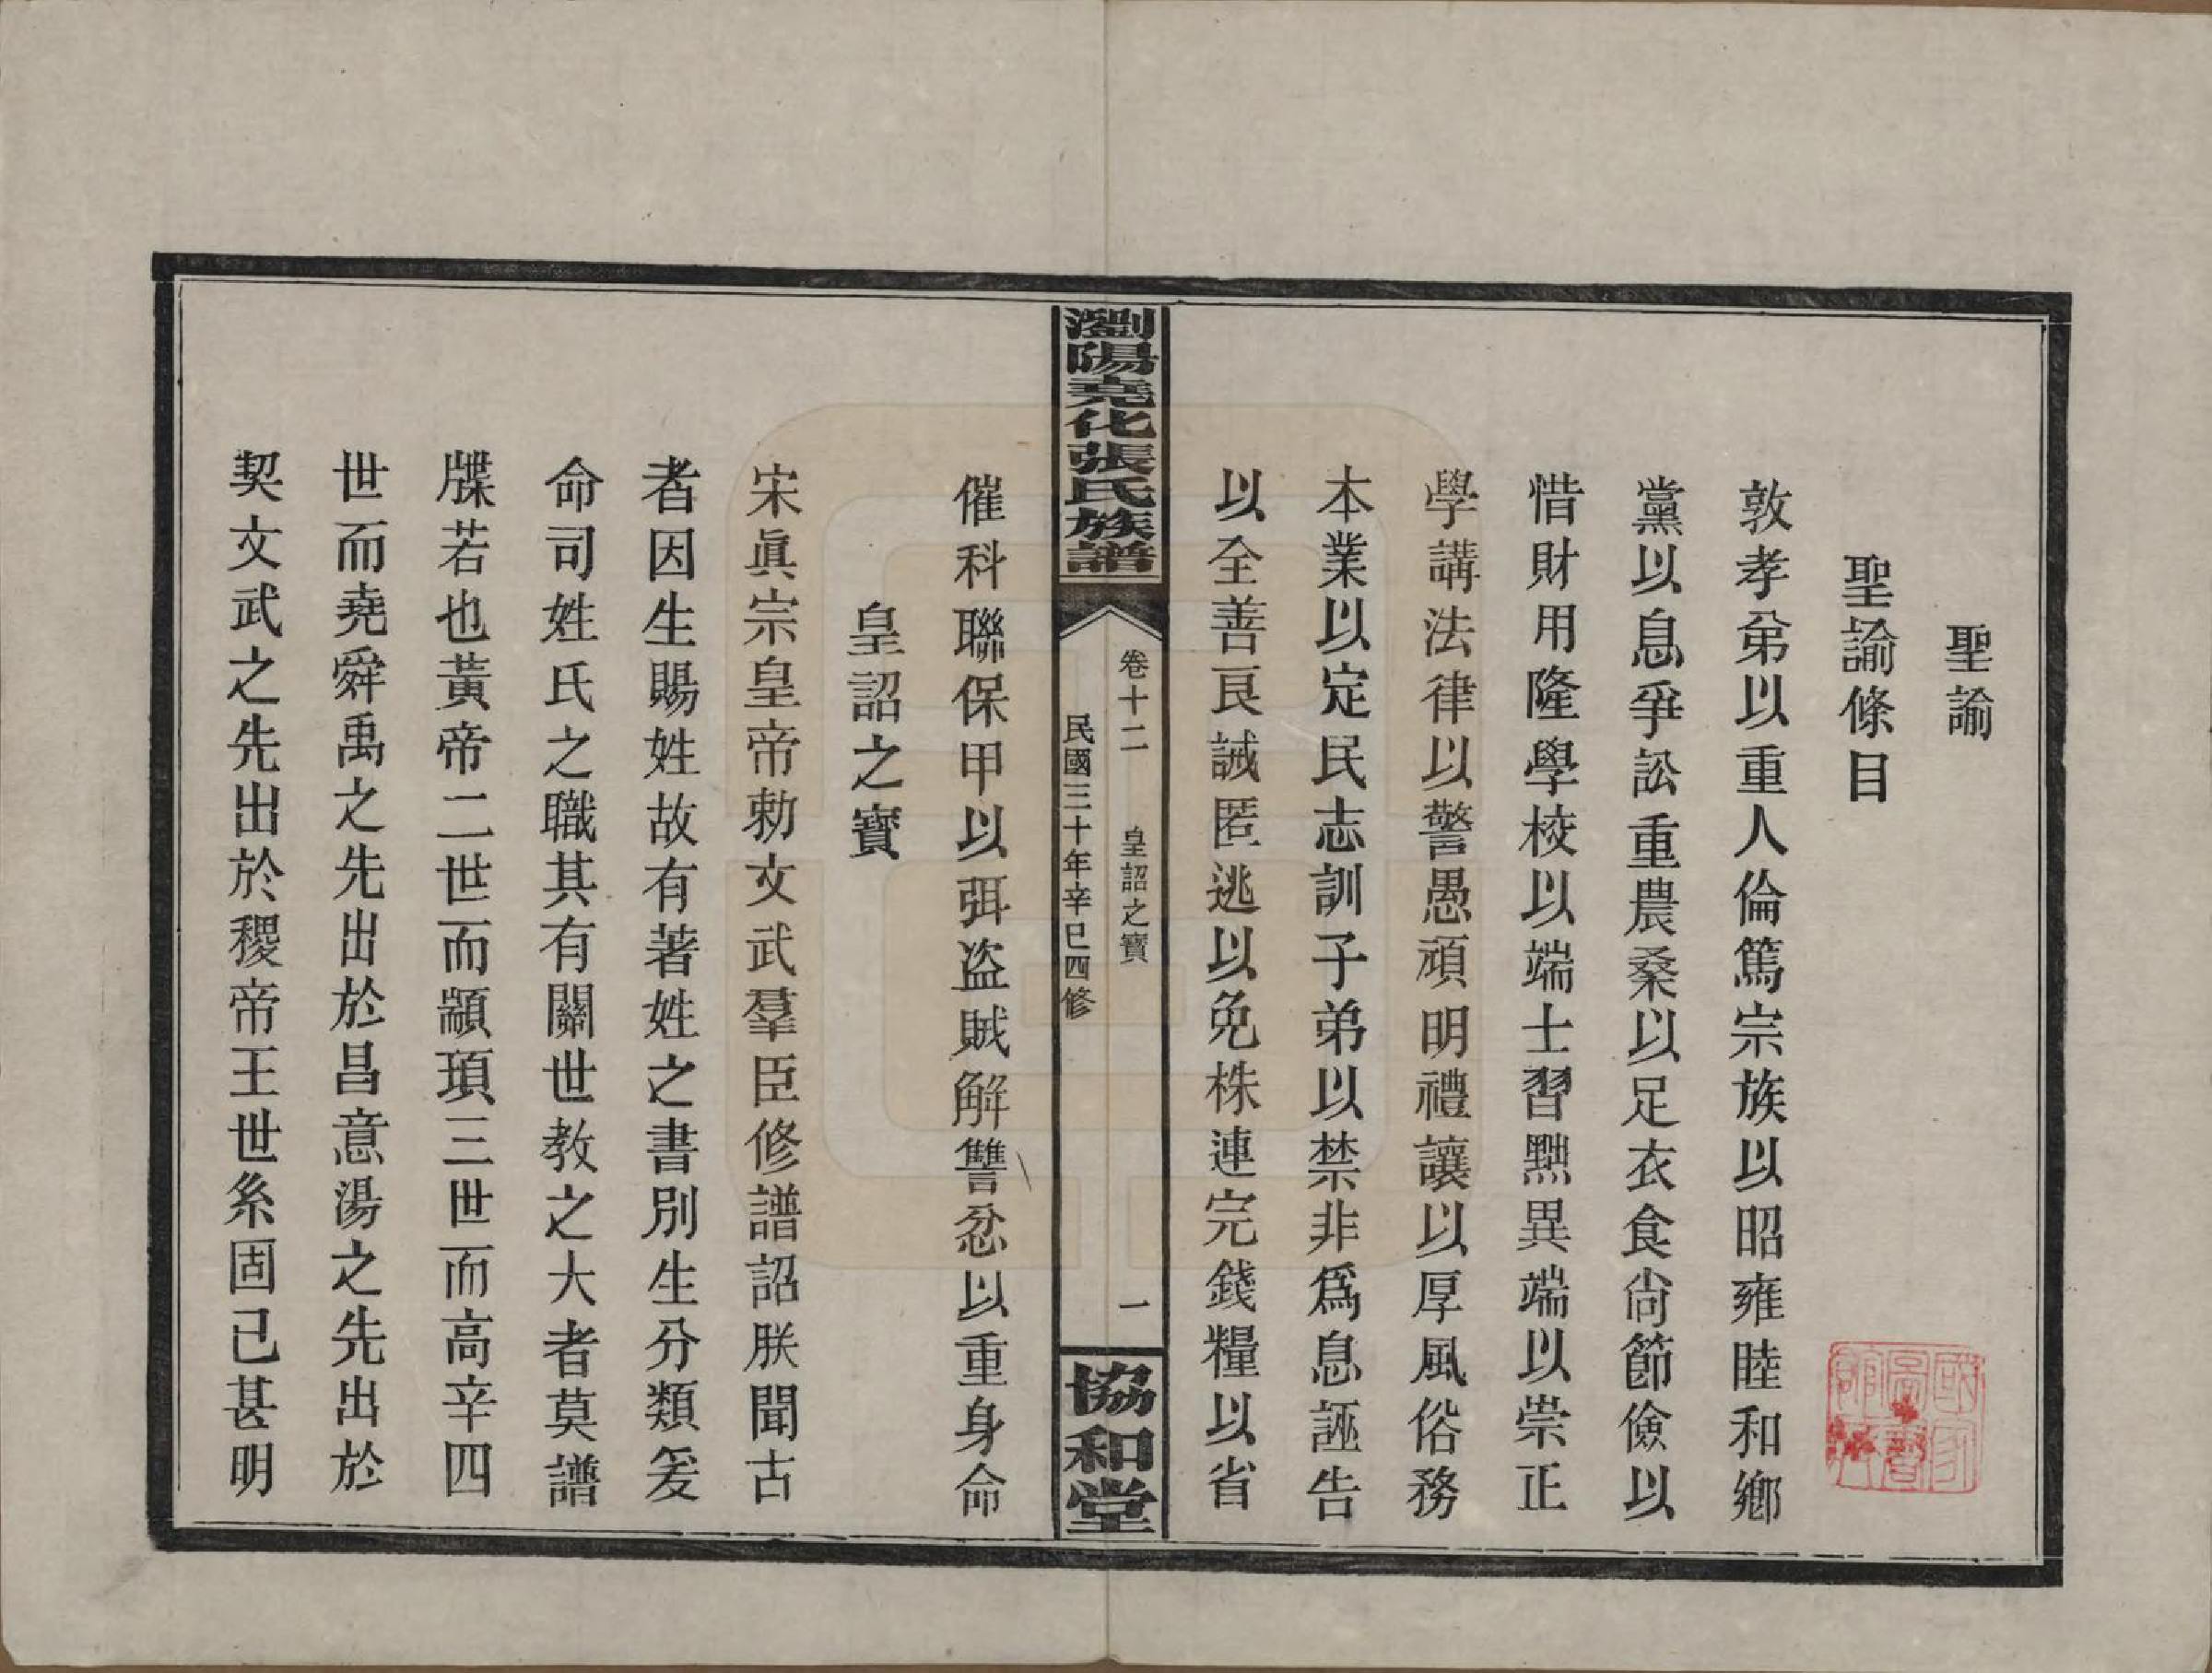 聖諭
聖諭條目
敦孝弟以重人倫篤宗族以昭雍睦和鄉
黨以息爭訟重農桑以足衣食尙節儉以
惜財用隆學校以端士習黜異端以崇正
學講法律以警愚頑明禮讓以厚風俗務
本業以定民志訓子弟以禁非爲息誣告
以全善良誡匿逃以免株連完錢糧以省
瀏陽堯化張氏族譜
卷十二 皇詔之寶 一
民國三十年辛巳四修
協和堂
催科聯保甲以弭盜賊解讐忿以重身命
皇詔之寶
宋眞宗皇帝勅文武羣臣修譜詔朕聞古
者因生賜姓故有著姓之書別生分類爰
命司姓氏之職其有關世教之大者莫譜
牒若也黃帝二世而顓頊三世而高辛四
世而堯舜禹之先出於昌意湯之先出於
契文武之先出於稷帝王世系固已甚明
國家圖書館藏